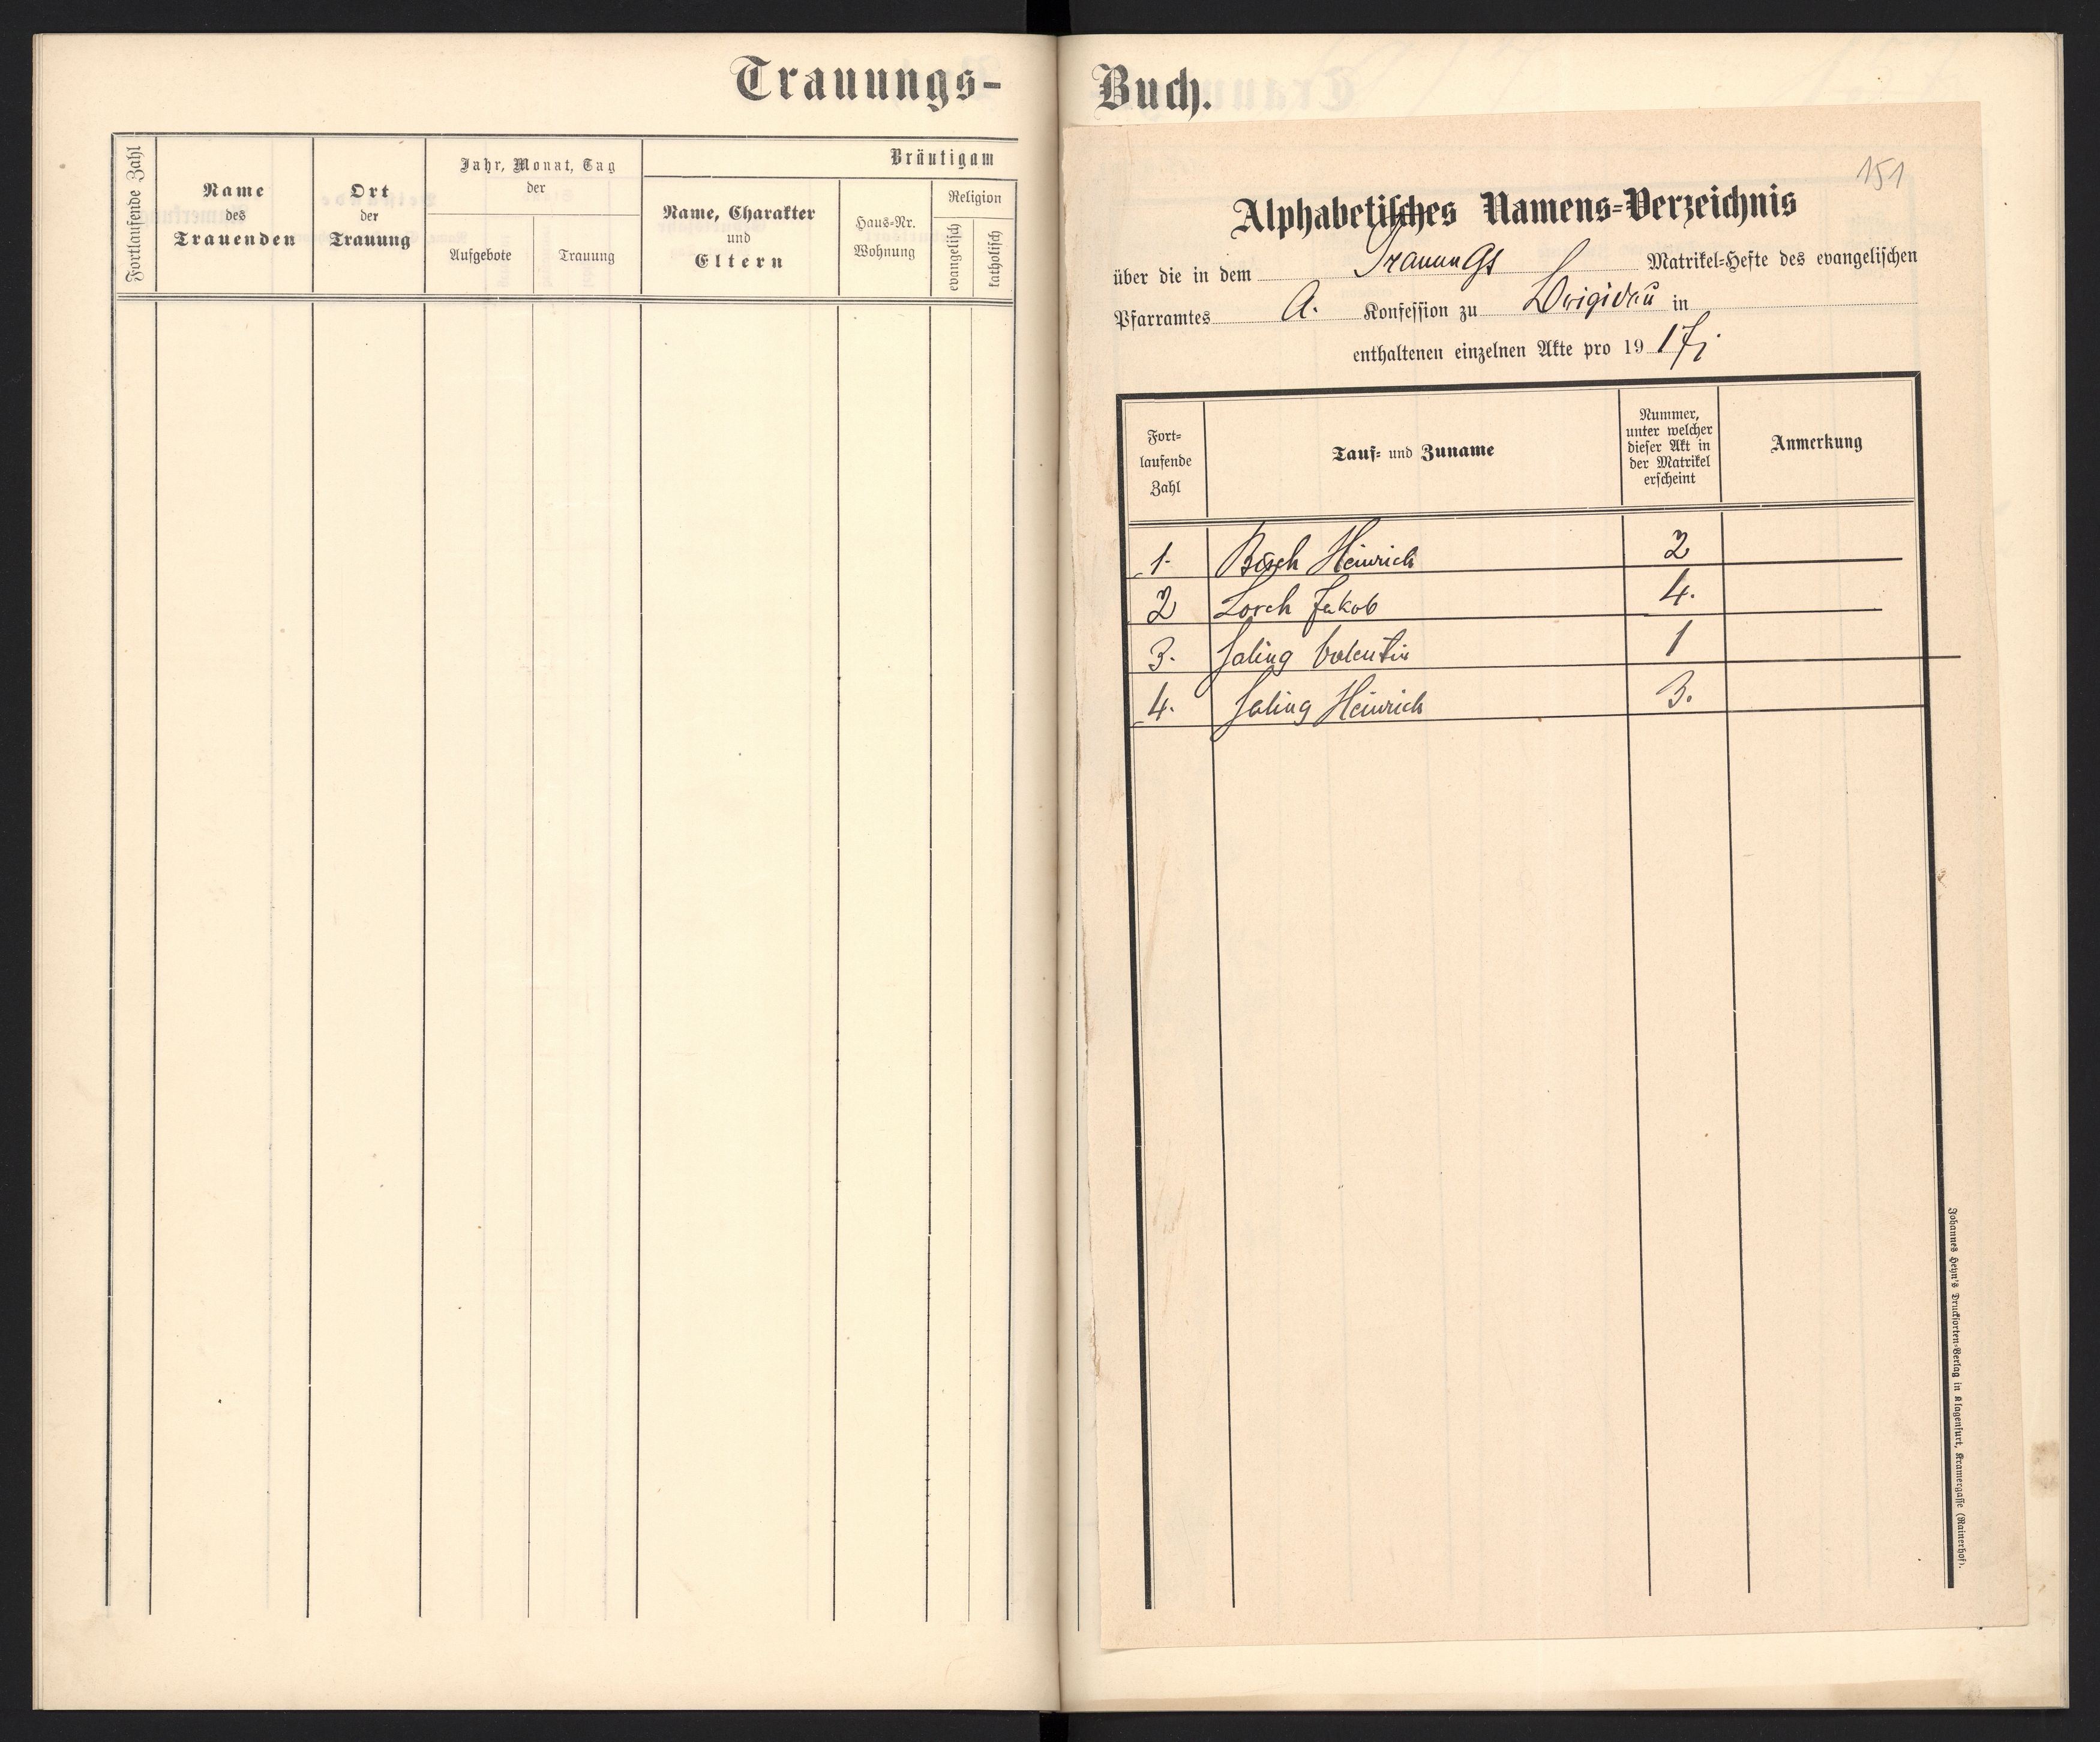 Trauungs-
Fortlaufende Zahl
Name
des
Trauenden
Ort
der
Trauung
Jahr, Monat, Tag
der
Aufgebote
Trauung
Bräutigam
Name, Charakter
und
Eltern
Haus-Nr.
Wohnung
Religion
evangelisch
katholisch
Buch.
151
Alphabetisches Namens-Verzeichnis
über die in dem Trauungs Matrikel-Hefte des evangelischen
Pfarramtes A. Konfession zu in
enthaltenen einzelnen Akte pro 1917
Fort-
laufende
Zahl
Tauf- und Zuname
Nummer,
unter welcher
dieser Akt in
der Matrikel
erscheint
Anmerkung
1. Heinrich 2
2 Lorch Jakob 4.
3. Saling Valentin 1
4. Saling Heinrich 3.
Johannes Heyn's Drucksorten-Verlag in Klagenfurt, Kramergasse (Rainerhof).